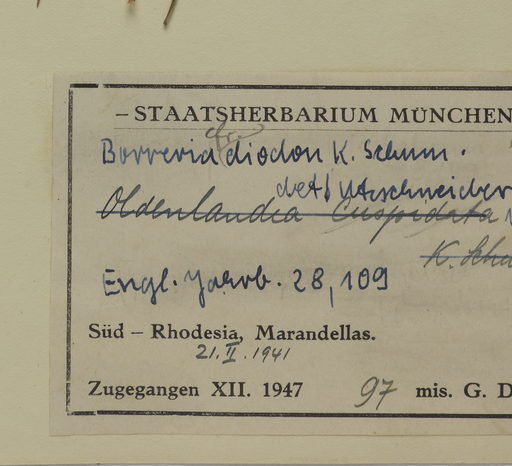 – STAATSHERBARIUM MÜNCHEN
cfr.
Borreria diodon K. Schum.
det.
Oldenlandia cuspidata
K. Schu
Engl. Jahrb. 28, 109
Süd – Rhodesia, Marandellas.
21. II. 1941
Zugegangen XII. 1947 97 mis. G. D